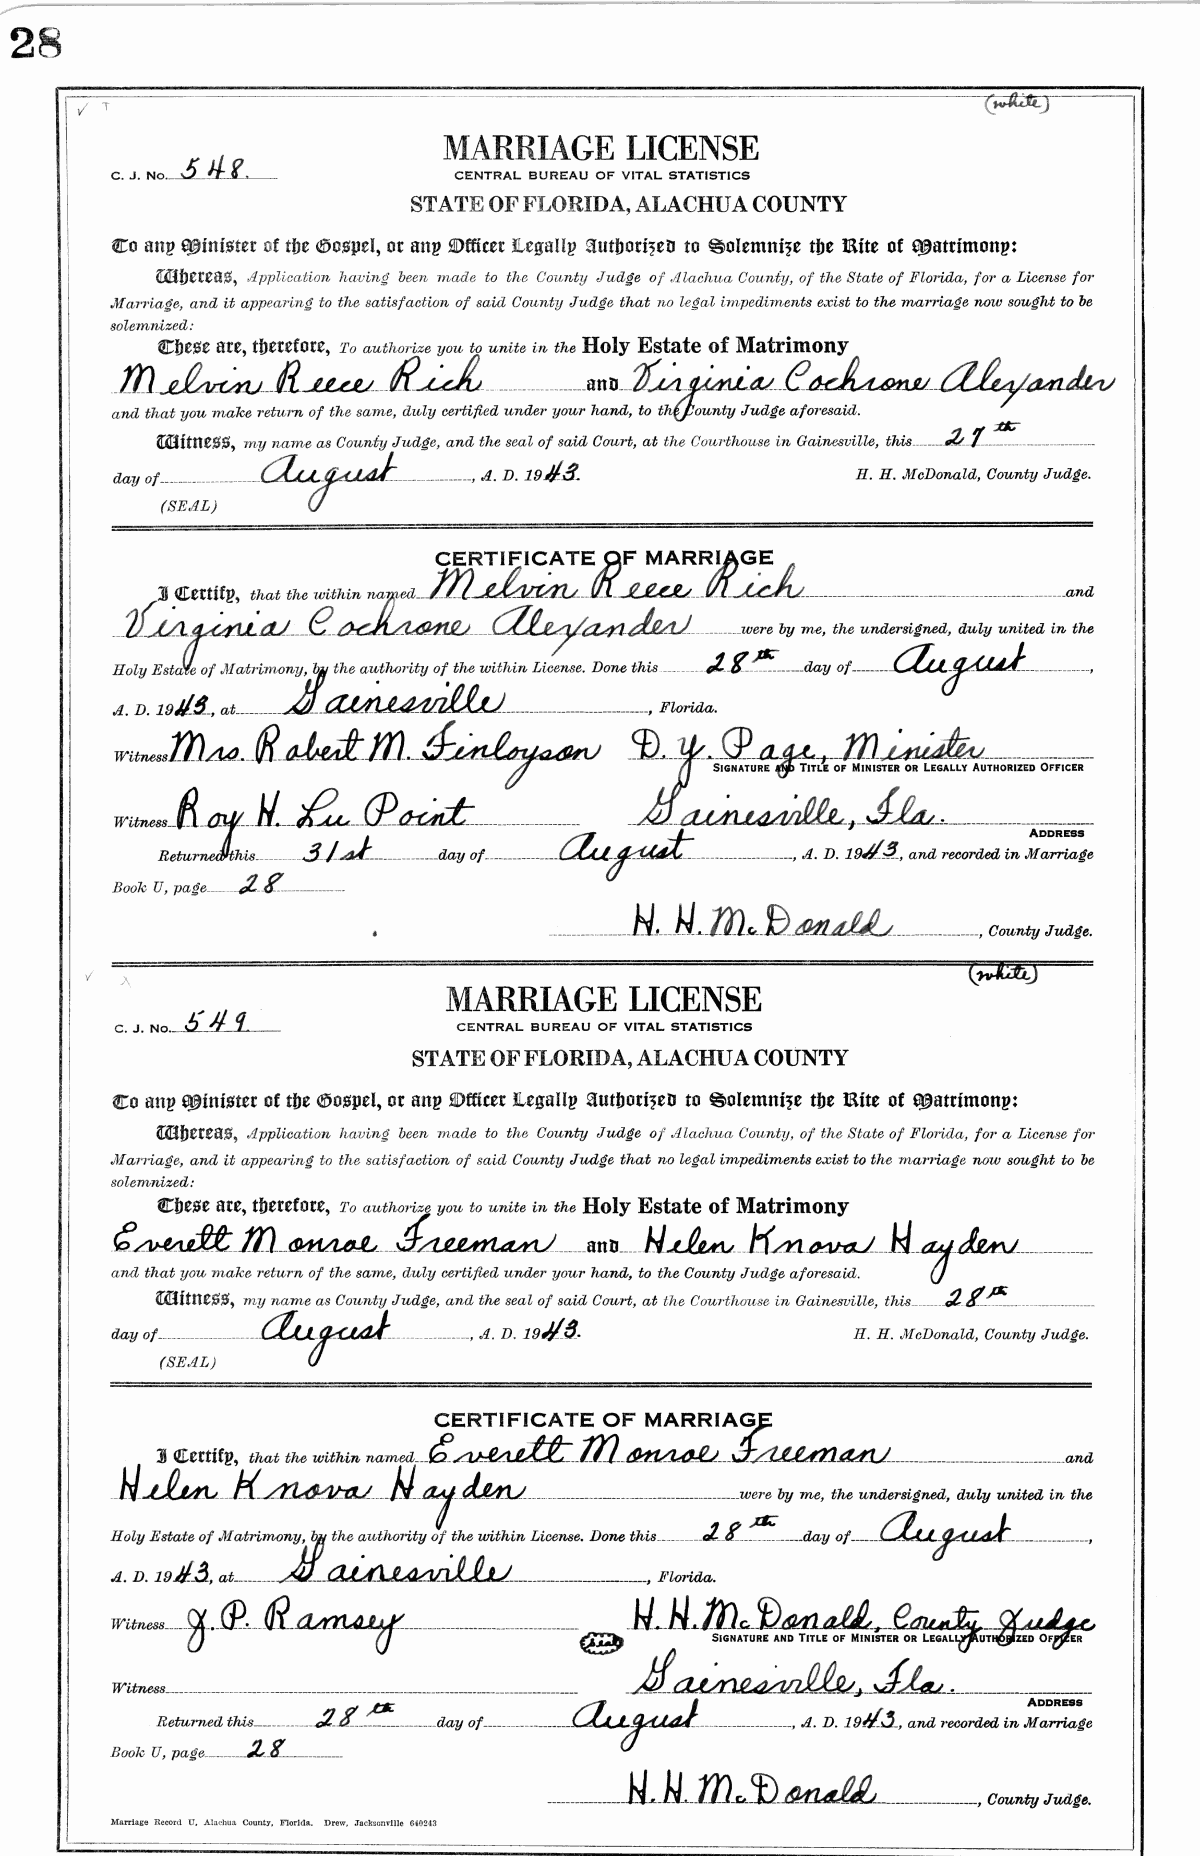 28
(white)
MARRIAGE LICENSE
C. J. No. 548.
CENTRAL BUREAU OF VITAL STATISTICS
STATE OF FLORIDA, ALACHUA COUNTY
To any Minister of the Gospel, or any Officer Legally Authorized to Solemnize the Rite of Matrimony:
Whereas, Application having been made to the County Judge of Alachua County, of the State of Florida, for a License for
Marriage, and it appearing to the satisfaction of said County Judge that no legal impediments exist to the marriage now sought to be
solemnized:
These are, therefore, To authorize you to unite in the Holy Estate of Matrimony
Melvin Reece Rich and Virginia Cochrone Alexander
and that you make return of the same, duly certified under your hand, to the County Judge aforesaid.
Witness, my name as County Judge, and the seal of said Court, at the Courthouse in Gainesville, this 27th
day of August, A. D. 1943. H. H. McDonald, County Judge.
(SEAL)
CERTIFICATE OF MARRIAGE
I Certify, that the within named Melvin Reece Rich and
Virginia Cochrone Alexander were by me, the undersigned, duly united in the
Holy Estate of Matrimony, by the authority of the within License. Done this 28th day of August,
A. D. 1943, at Gainesville, Florida.
Witness Mrs. Robert M. Finloyson D. Y. Page, Minister
SIGNATURE AND TITLE OF MINISTER OR LEGALLY AUTHORIZED OFFICER
Witness Roy H. Lu Point Gainesville, Fla.
ADDRESS
Returned this 31st day of August, A. D. 1943, and recorded in Marriage
Book U, page 28
H. H. McDonald, County Judge.
(white)
MARRIAGE LICENSE
C. J. No. 549
CENTRAL BUREAU OF VITAL STATISTICS
STATE OF FLORIDA, ALACHUA COUNTY
To any Minister of the Gospel, or any Officer Legally Authorized to Solemnize the Rite of Matrimony:
Whereas, Application having been made to the County Judge of Alachua County, of the State of Florida, for a License for
Marriage, and it appearing to the satisfaction of said County Judge that no legal impediments exist to the marriage now sought to be
solemnized:
These are, therefore, To authorize you to unite in the Holy Estate of Matrimony
Everett Monroe Freeman and Helen Knova Hayden
and that you make return of the same, duly certified under your hand, to the County Judge aforesaid.
Witness, my name as County Judge, and the seal of said Court, at the Courthouse in Gainesville, this 28th
day of August, A. D. 1943. H. H. McDonald, County Judge.
(SEAL)
CERTIFICATE OF MARRIAGE
I Certify, that the within named Everett Monroe Freeman and
Helen Knova Hayden were by me, the undersigned, duly united in the
Holy Estate of Matrimony, by the authority of the within License. Done this 28th day of August,
A. D. 1943, at Gainesville, Florida.
Witness J. P. Ramsey H. H. McDonald, County Judge
(seal) SIGNATURE AND TITLE OF MINISTER OR LEGALLY AUTHORIZED OFFICER
Witness Gainesville, Fla.
ADDRESS
Returned this 28th day of August, A. D. 1943, and recorded in Marriage
Book U, page 28
H. H. McDonald, County Judge.
Marriage Record U, Alachua County, Florida. Drew, Jacksonville 640243